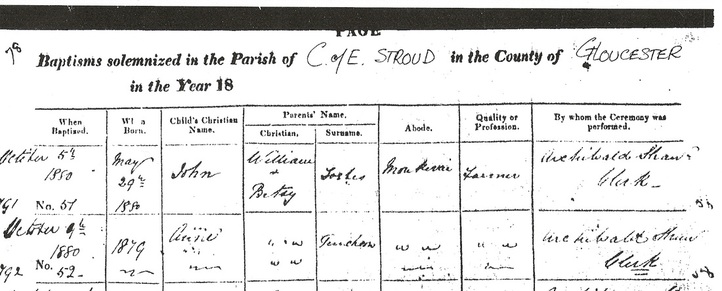 PAGE
78
Baptisms solemnized in the Parish of C of E. STROUD in the County of GLOUCESTER
in the Year 18
When Baptized.
When Born.
Child's Christian Name.
Parents' Name.
Christian,
Surname.
Abode.
Quality or Profession.
By whom the Ceremony was performed.
October 5th 1880
No. 51
May 29th 1880
John
William + Betsy
Farmer
Archibald Shaw Clerk
October 9th 1880
No. 52
1879
Annie
" "
" "
" "
" "
Archibald Shaw
Clerk